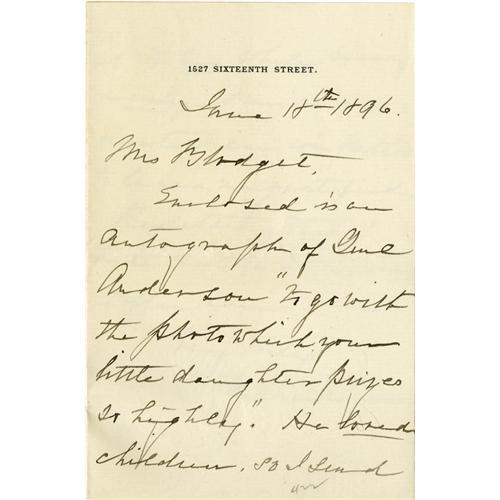 1627 SIXTEENTH STREET.
June 18th 1896.
Mrs Blodget,
Enclosed is an
autograph of Genl
Anderson "to go with
the photo which your
little daughter prizes
so highly." He loved
children, so I send